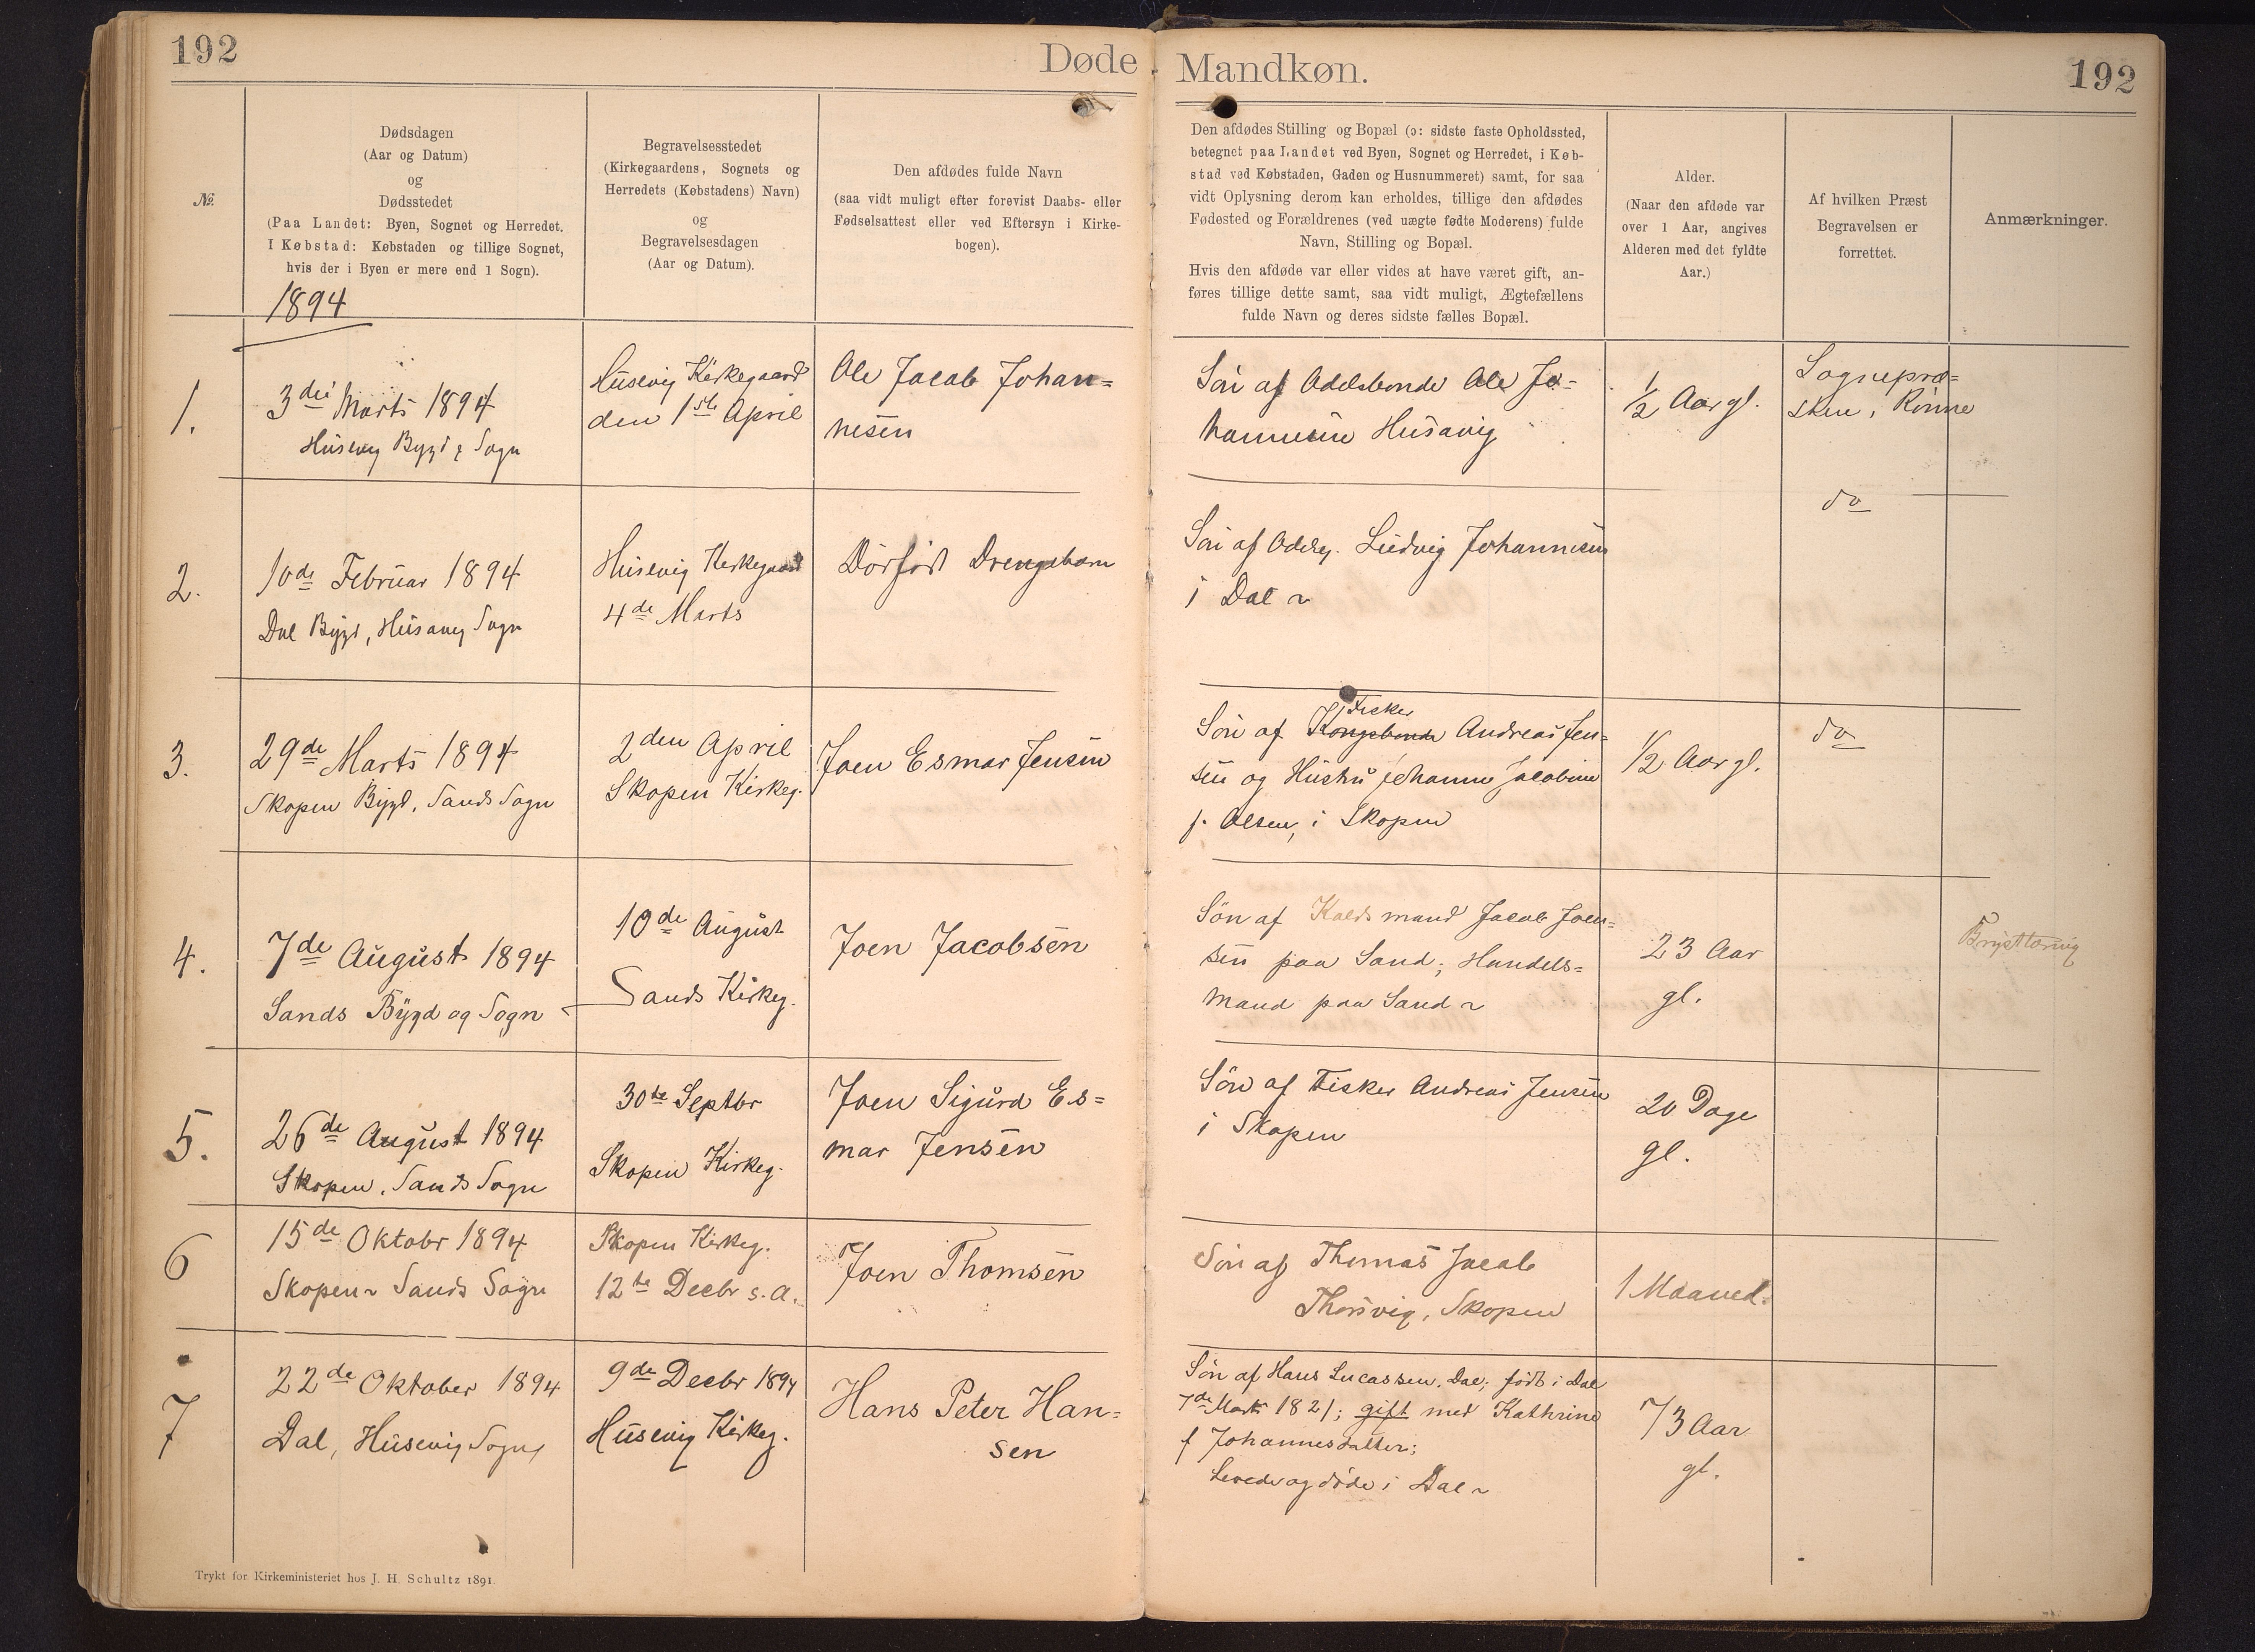 192
Døde
Mandkøn.
192
№.
Dødsdagen
(Aar og Datum)
og
Dødsstedet
(Paa Landet: Byen, Sognet og Herredet.
I Købstad: Købstaden og tillige Sognet,
hvis der i Byen er mere end 1 Sogn).
1894
Begravelsesstedet
(Kirkegaardens, Sognets og
Herredets (Købstadens) Navn)
og
Begravelsesdagen
(Aar og Datum).
Den afdødes fulde Navn
(saa vidt muligt efter forevist Daabs- eller
Fødselsattest eller ved Eftersyn i Kirke-
bogen).
Den afdødes Stilling og Bopæl (ɔ: sidste faste Opholdssted,
betegnet paa Landet ved Byen, Sognet og Herredet, i Køb-
stad ved Købstaden, Gaden og Husnummeret) samt, for saa
vidt Oplysning derom kan erholdes, tillige den afdødes
Fødested og Forældrenes (ved uægte fødte Moderens) fulde
Navn, Stilling og Bopæl.
Hvis den afdøde var eller vides at have været gift, an-
føres tillige dette samt, saa vidt muligt, Ægtefællens
fulde Navn og deres sidste fælles Bopæl.
Alder.
(Naar den afdøde var
over 1 Aar, angives
Alderen med det fyldte
Aar.)
Af hvilken Præst
Begravelsen er
forrettet.
Anmærkninger.
1.
3die Marts 1894
Husevig Bygd & Sogn
Husevig Kirkegaard
den 1ste April
Ole Jacob Johan=
nesen
Søn af Odelsbonde Ole Jo=
hannesen Husavig
1/2 Aar gl.
Sognepræ=
sten, Rønne
2.
10de Februar 1894
Dal Bygd, Husavig Sogn
Husevig Kirkegaard
4de Marts
Dødfødt Drengebarn
Søn af Odelsb. Ludvig Johannesen
i Dal ~
do
3.
29de Marts 1894
Skopen Bygd, Sands Sogn
2den April
Skopen Kirkeg.
Joen Esmar Jensen
Fisker
Søn af Kongsbonde Andreas Jen=
sen og Hustru Johanne Jacobine
f. Olsen, i Skopen
1/2 Aar gl.
do
4.
7de August 1894
Sands Bygd og Sogn
10de August
Sands Kirkeg.
Joen Jacobsen
Søn af Kaldsmand Jacob Joen=
sen paa Sand; Handels=
mand paa Sand ~
23 Aar
gl.
Brysttæring
5.
26de August 1894
Skopen, Sands Sogn
30te Septbr
Skopen Kirkeg.
Joen Sigurd Es=
mar Jensen
Søn af Fisker Andreas Jensen
i Skopen
20 Dage
gl.
6
15de Oktobr 1894
Skopen ~ Sands Sogn
Skopen Kirkeg.
12te Decbr s. A.
Joen Thomsen
Søn af Thomas Jacob
Thorsvig, Skopen
1 Maaned.
7
22de Oktober 1894
Dal, Husevig Sogn
9de Decbr 1894
Husevig Kirkeg.
Hans Peter Han=
sen
Søn af Hans Lucassen, Dal; født i Dal
7de Marts 1821; gift med Kathrine
f Johannesdatter;
Levede og døde i Dal ~
73 Aar
gl.
Trykt for Kirkeministeriet hos J. H. Schultz 1891.